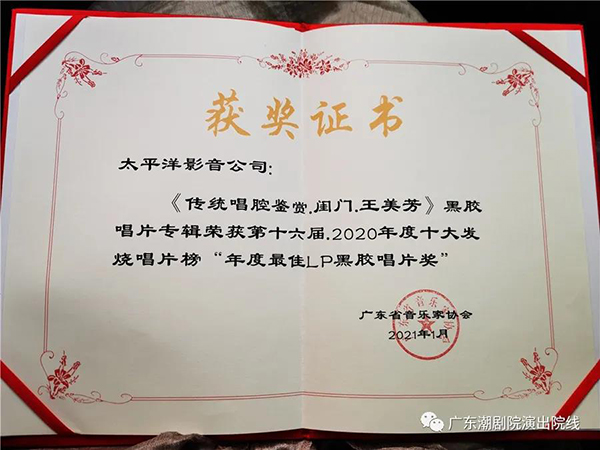 获奖证书
太平洋影音公司:
《传统唱腔鉴赏.闺门.王美芳》黑胶
唱片专辑荣获第十六届.2020年度十大发
烧唱片榜“年度最佳LP黑胶唱片奖”
广东省音乐家协会
2021年1月
广东潮剧院演出院线